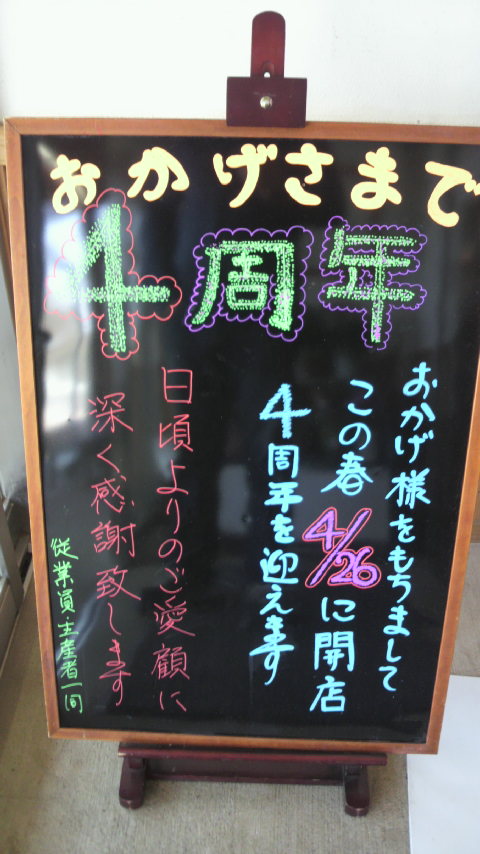 おかげさまで
4周年
おかげ様をもちまして
この春4/26に開店
4周年を迎えます
日頃よりのご愛顧に
深く感謝致します
従業員・生産者一同